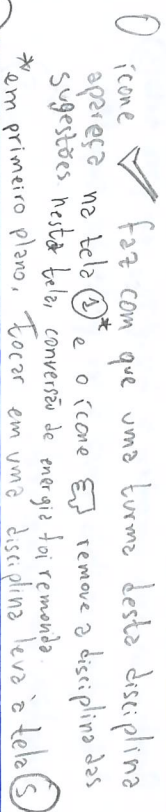 O
ícone ✓ faz com que uma turma desta disciplina
apareça na tela ①* e o ícone remove a disciplina das
sugestões. Nesta tela, conversão de energia foi removida.
*em primeiro plano, Tocar em uma disciplina leva à tela ⑤